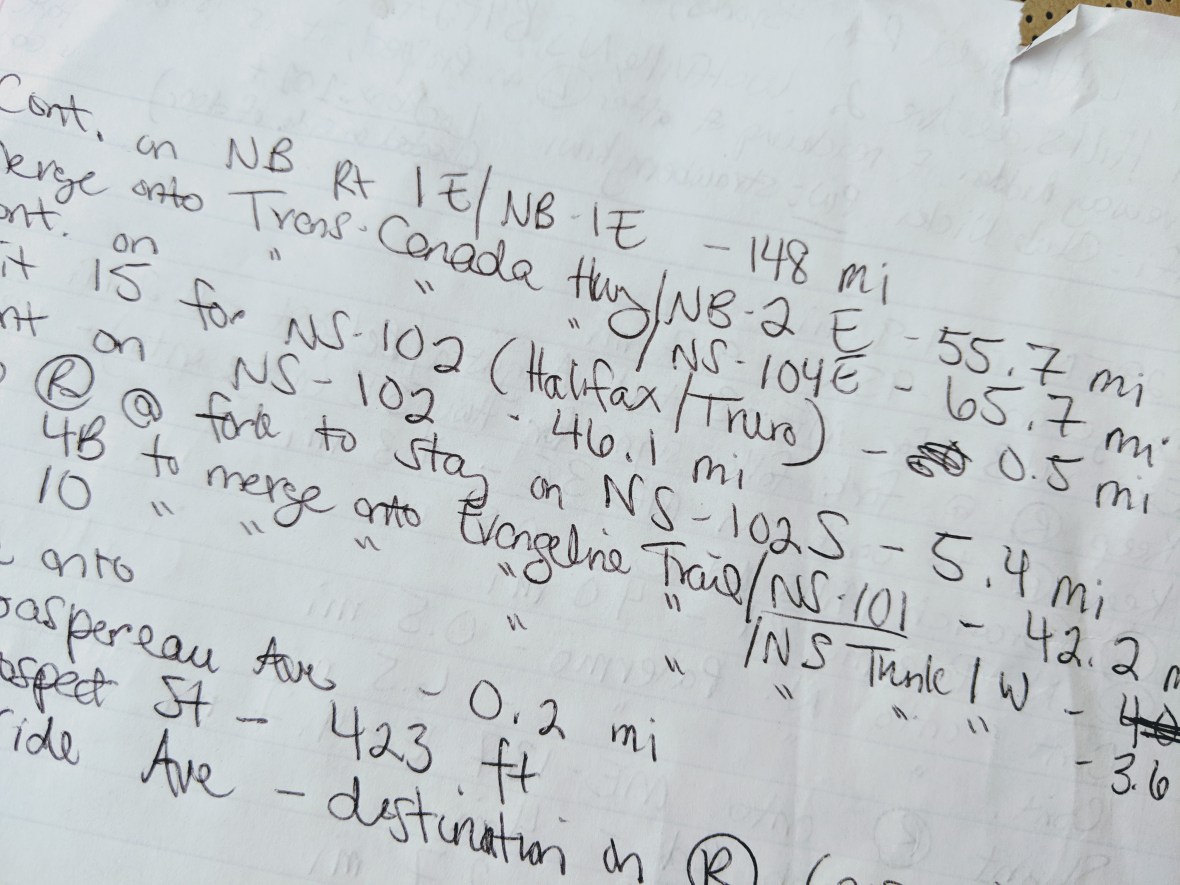 Cont. on NB Rt 1E/NB-1E - 148 mi
erge onto Trans-Canada Hwy/NB-2 E - 55.7 mi
ont. on " " "/NS-104E - 65.7 mi
it 15 for NS-102 (Halifax/Truro) - 0.5 mi
nt on NS-102 - 46.1 mi
(R) @ fork to stay on NS-102S - 5.4 mi
4B to merge onto Evangeline Trail/NS-101 - 42.2 m
10 " " " " " "/NS Trunk 1 W -
onto " " " " - 3.6
aspereau Ave - 0.2 mi
ospect St - 423 ft
ide Ave - destination on (R)